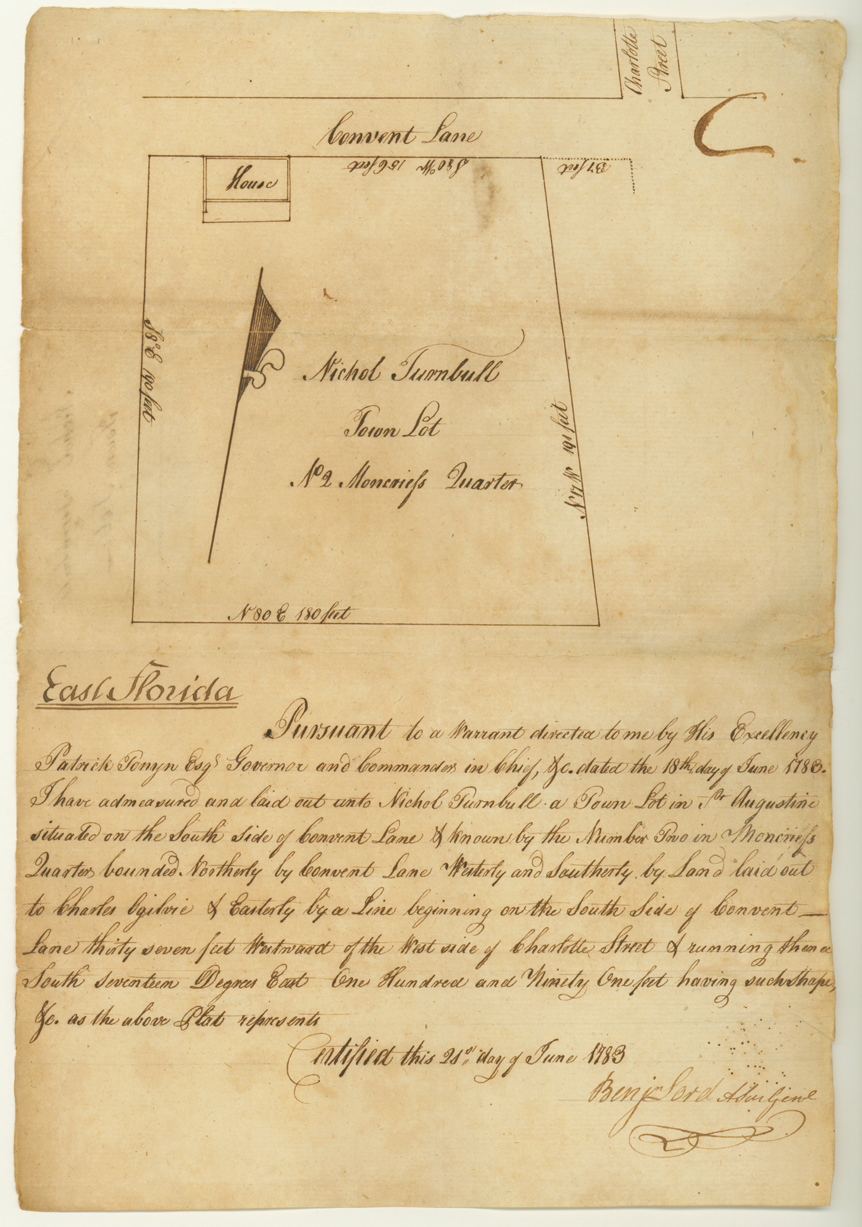 Charlotte
Street
Convent Lane
S 80 W 156 feet
37 feet
House
S 8° E 190 feet
Nichol Turnbull
Town Lot
N° 2 Moncriefs Quarter
N 17 W 191 feet
N 80 E 180 feet
East Florida
Pursuant to a Warrant directed to me by His Excellency
Patrick Tonyn Esqr Governor and Commander in Chief, &c. dated the 18th day of June 1783.
I have admeasured and laid out unto Nichol Turnbull a Town Lot in St Augustine
situated on the South Side of Convent Lane & known by the Number Two in Moncriefs
Quarter bounded Northerly by Convent Lane Westerly and Southerly by Land laid out
to Charles Ogilvie & Easterly by a Line beginning on the South Side of Convent
Lane thirty seven feet Westward of the West side of Charlotte Street & running thence
South seventeen Degrees East One Hundred and Ninety One feet having such shape,
&c. as the above Plat represents
Certified this 21st day of June 1783
Benjn Lord A Sur Genl